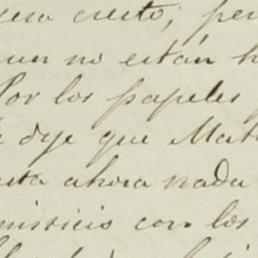 cierto; per
un no están h
Por los papeles
dije que Mat
ta ahora nada
misicis con los